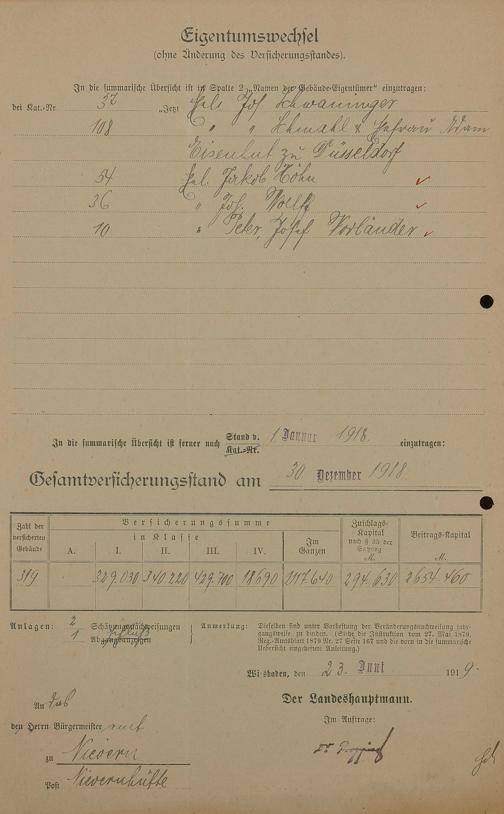 Eigentumswechsel
(ohne Änderung des Versicherungsstandes).
In die summarische Übersicht ist in Spalte 2 „Namen der Gebäude-Eigentümer“ einzutragen:
bei Kat.-Nr. 37 „Jetzt Joh Schwaninger
108 " " Schmahl & Ehefrau Adam
Eisenhut zu Düsseldorf
54 Jakob Höhn
36 " Joh. Wolff
10 " Peter, Josef Vorländer
In die summarische Übersicht ist ferner nach Stand v. 1 Januar 1918 einzutragen:
Kat.-Nr.
Gesamtversicherungsstand am 30 Dezember 1918
Zahl der versicherten Gebäude
Versicherungssumme
in Klasse
Im Ganzen
Zuschlags-Kapital nach § 35 der Satzung M.
Beitrags-Kapital M.
A. I. II. III. IV.
319 329,030 340 220 429,700 18690 1117,640 294,630 2654,460
Anlagen: 2 Schätzungsnachweisungen
1 Abgangsanzeigen
Anmerkung: Dieselben sind unter Vorheftung der Veränderungsnachweisung jahrgangsweise zu binden. (Siehe die Instruktion vom 27. Mai 1879, Reg.-Amtsblatt 1879 Nr. 27 Seite 167 und die vorn in die summarische Übersicht eingeheftete Anleitung.)
Wiesbaden, den 23. Juni 1919.
Der Landeshauptmann.
Im Auftrage:
An das
den Herrn Bürgermeister amt
zu Nievern
Post Nievernhütte